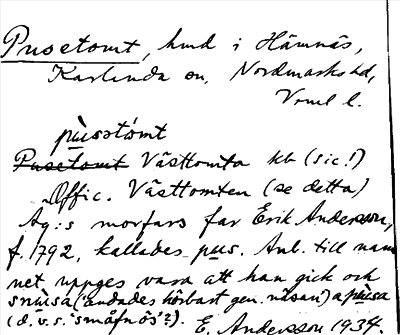 Pusetomt, hmd i Hämnäs,
Karlanda sn, Nordmarks hd,
Vrml l.
pùsstómt
Pusetomt Västtomta kb (sic!)
Offic. Västtomten (se detta)
Äg:s morfars far Erik Andersson,
f. 1792, kallades pus. Anl. till nam
net uppges vara att han gick och
snùsa ('andades hörbart gen. näsan') a pùsa
(d. v. s. 'småfnös'?). E. Andersson 1934.